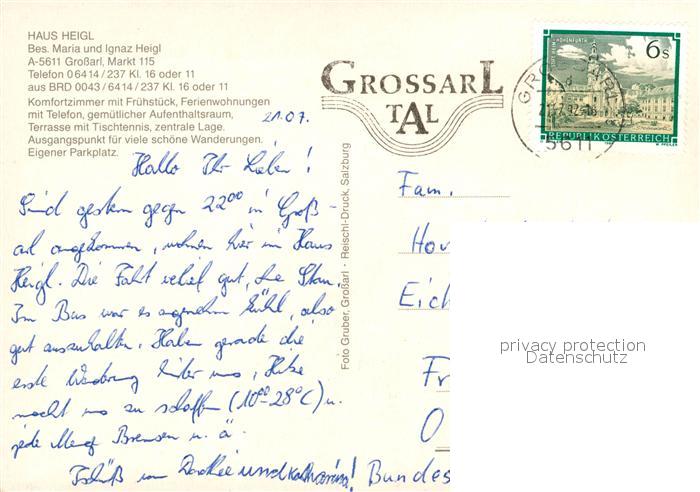 HAUS HEIGL
Bes. Maria und Ignaz Heigl
A-5611 Großarl, Markt 115
Telefon 0 6414 / 237 Kl. 16 oder 11
aus BRD 0043 / 6414 / 237 Kl. 16 oder 11
Komfortzimmer mit Frühstück, Ferienwohnungen
mit Telefon, gemütlicher Aufenthaltsraum,
Terrasse mit Tischtennis, zentrale Lage.
Ausgangspunkt für viele schöne Wanderungen.
Eigener Parkplatz.
21.07.
Hallo Ihr Lieben!
Sind gestern gegen 22⁰⁰ in Groß-
arl angekommen, wohnen hier im Haus
Heigl. Die Fahrt verlief gut, ohne Stau.
Im Bus war es angenehm kühl, also
gut auszuhalten. Haben gerade die
erste Wanderung hinter uns, Hitze
macht uns zu schaffen (10⁰⁰-28°C) u.
jede Menge Bremsen u. ä.
Tschüß von Dorthee und Katharina!
Foto Gruber, Großarl - Reischl-Druck, Salzburg
GROSSARL
TAL
5611
6 S
REPUBLIK ÖSTERREICH
Fam.
Hov
Eich
Fr
O
Bundes
privacy protection
Datenschutz